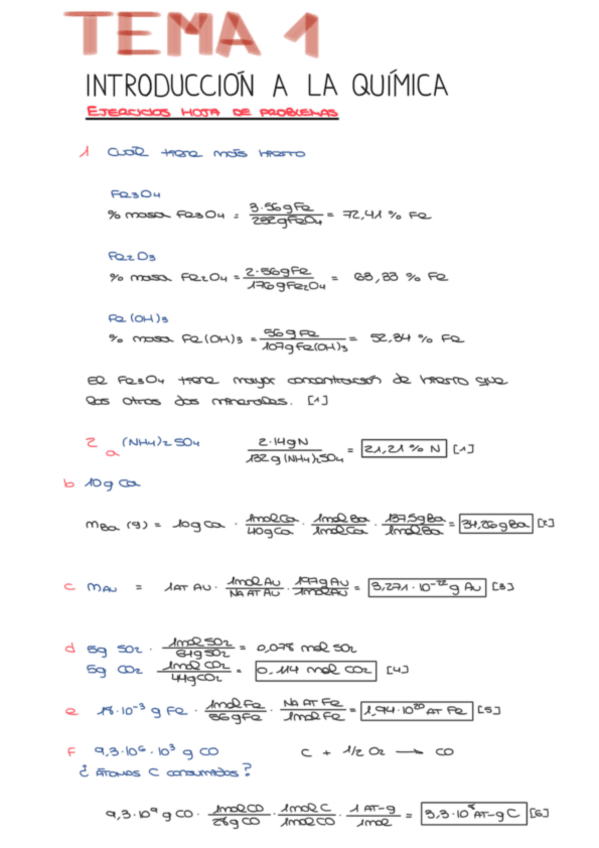 TEMA 1
INTRODUCCIÓN A LA QUÍMICA
EJERCICIOS HOJA DE PROBLEMAS
1 Cuál tiene más hierro
Fe3O4
% masa Fe3O4 = 3·56g Fe / 232g Fe3O4 = 72,41 % Fe
Fe2O3
% masa Fe2O4 = 2·56g Fe / 176g Fe2O4 = 63,83 % Fe
Fe(OH)3
% masa Fe(OH)3 = 56g Fe / 107g Fe(OH)3 = 52,34 % Fe
El Fe3O4 tiene mayor concentración de hierro que
los otros dos minerales. [1]
2 a (NH4)2SO4 2·14g N / 132g (NH4)2SO4 = 21,21 % N [1]
b 10g Ca
mBa (g) = 10g Ca · 1mol Ca / 40g Ca · 1mol Ba / 1mol Ca · 137,5g Ba / 1mol Ba = 34,26g Ba [2]
c mAu = 1AT Au · 1mol Au / NA AT Au · 197g Au / 1mol Au = 3,271·10⁻²² g Au [3]
d 5g SO2 · 1mol SO2 / 64g SO2 = 0,078 mol SO2
5g CO2 1mol CO2 / 44g CO2 = 0,114 mol CO2 [4]
e 18·10⁻³ g Fe · 1mol Fe / 56g Fe · NA AT Fe / 1mol Fe = 1,94·10²⁰ AT Fe [5]
f 9,3·10⁶·10³ g CO C + 1/2 O2 → CO
¿Átomos C consumidos?
9,3·10⁹ g CO · 1mol CO / 28g CO · 1mol C / 1mol CO · 1 AT-g / 1mol = 3,3·10⁸ AT-g C [6]